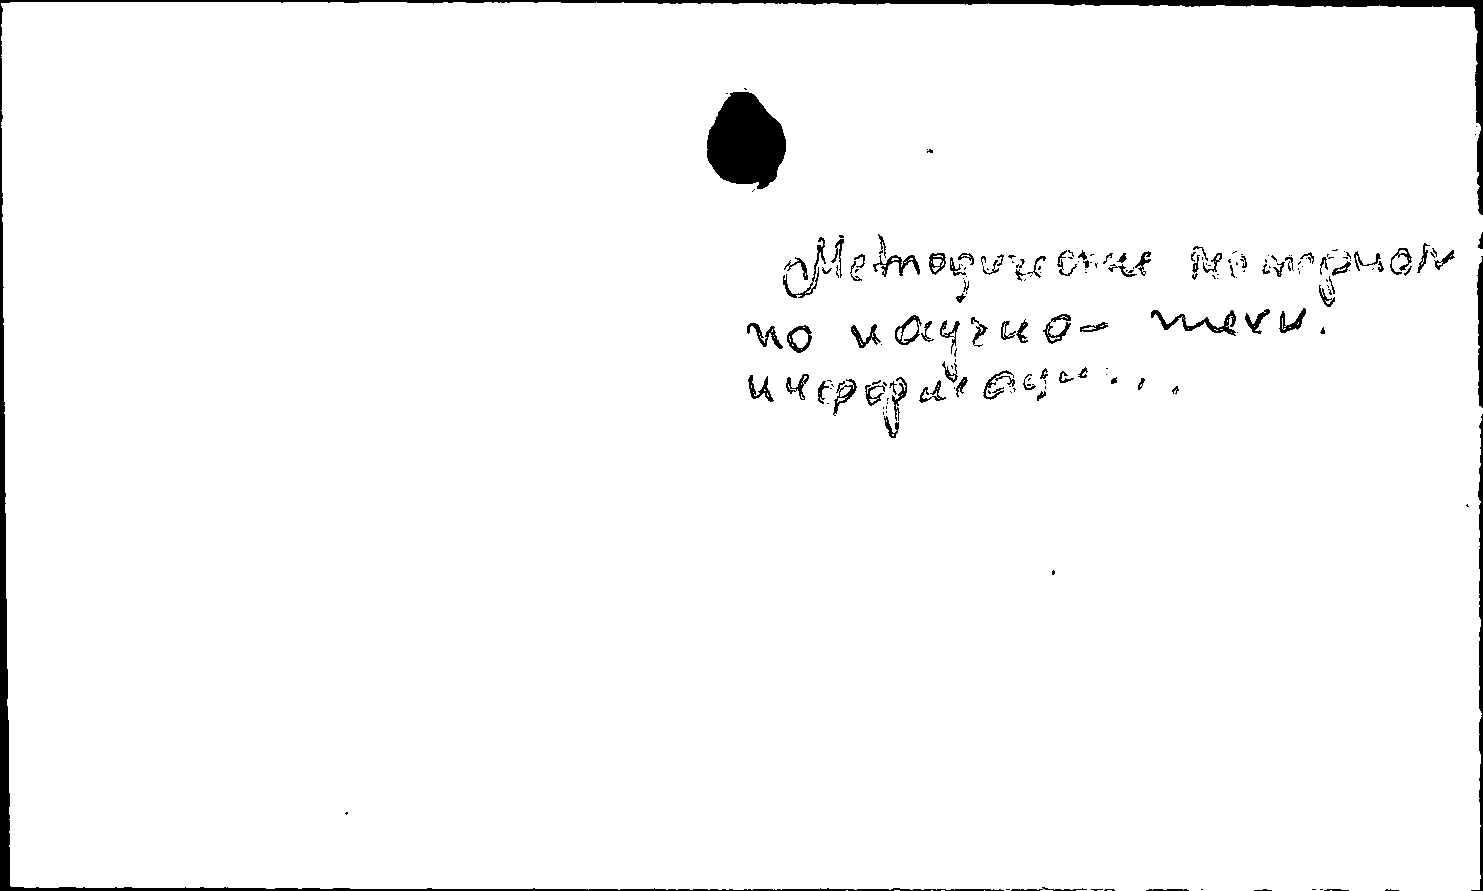 Методические материал
по научно- техн.
информации...